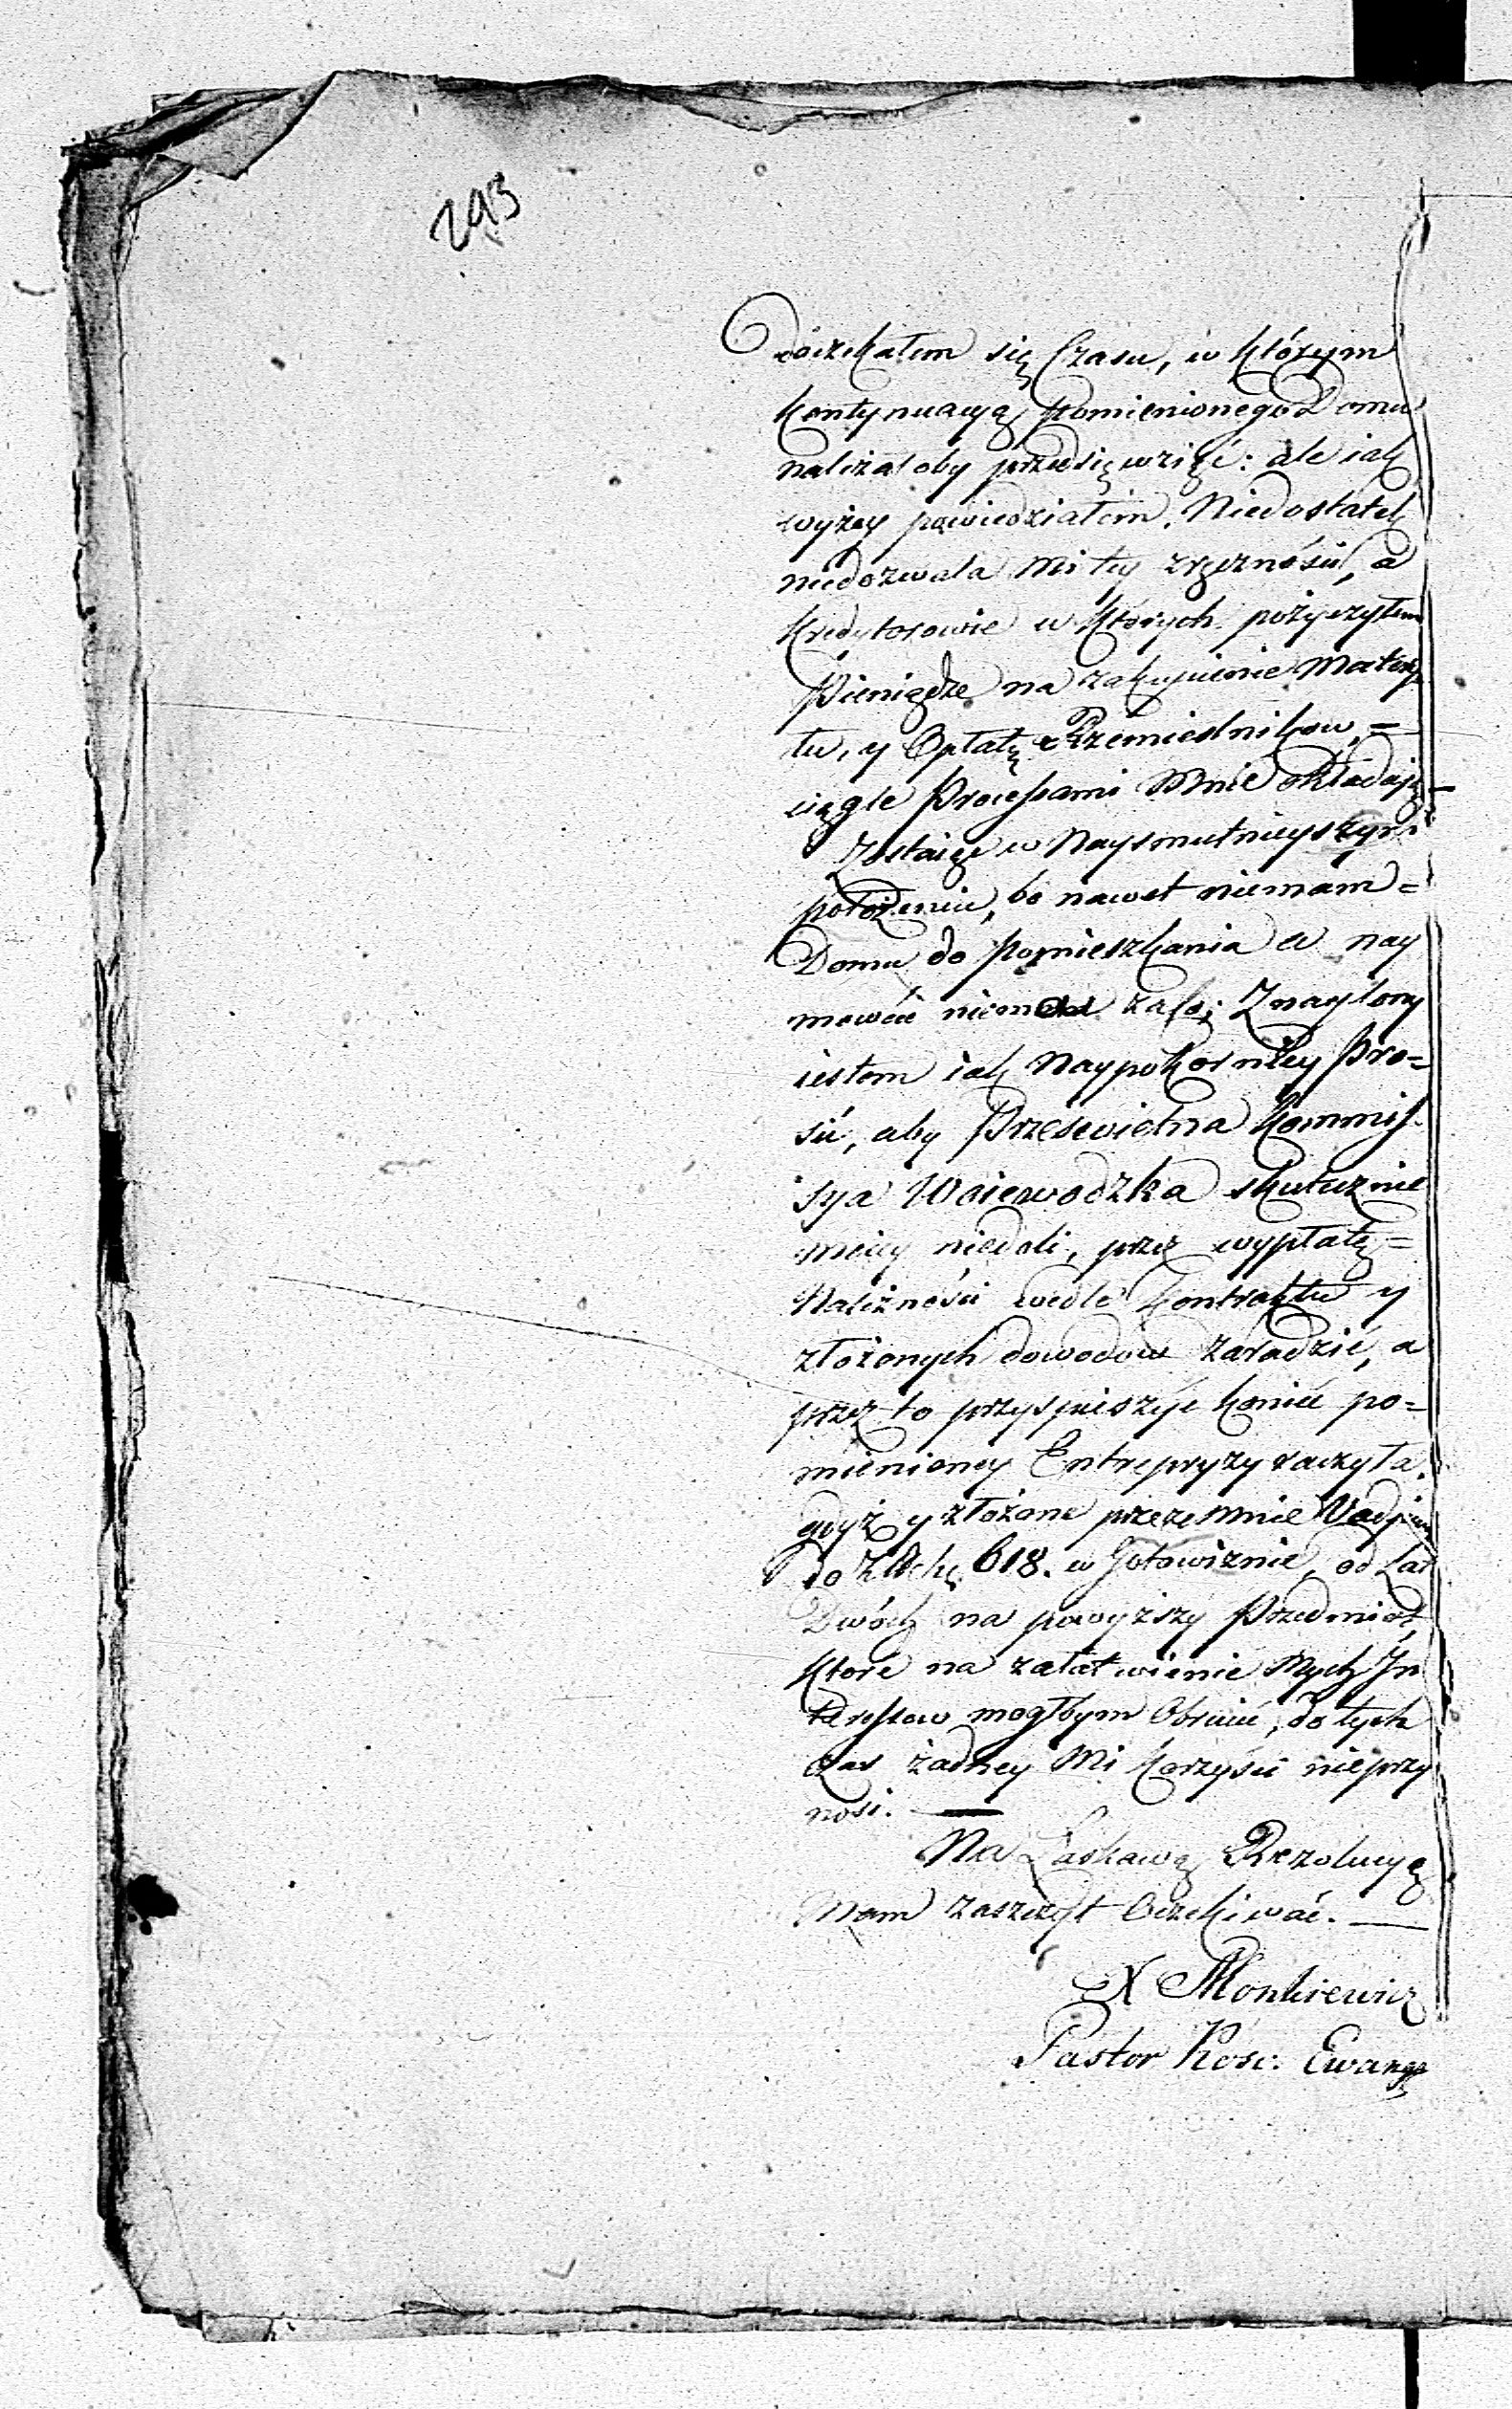 293
doczekałem się Czasu, w którym
kontynuacyą pomienionego Domu
należałoby przedsięwziąć: ale iak
wyżey powiedziałem, Niedostatek
niedozwala mi tey zręczności, a
kredytorowie u których pożyczyłem
Pieniądze na zakupienie Matery-
łu, y Opłatę Rzemieslnikow, —
ciągle Processami Mnie okładaią —
Zostaię w Naysmutnieyszym
położeniu, bo nawet niemam =
Domu do pomieszkania a nay
mować niema za co; Znaglony
iestem iak Naypokorniey pro=
sić, aby Prześwietna Kommis-
sya Woiewodzka skutecznie
moiey niedoli, przez wypłatę =
Należności wedle kontraktu y
złożonych dowodow zaradzić, a
przez to przyspieszyć koniec po=
mienioney Entrepryzy raczyła.
gdyż y złożone przezemnie Vadium
do Zł 618. w Gotowiznie, od Lat
Dwóch na powyższy Przedmiot,
które na załatwienie Mych In
teressow mogłbym Obrócić, do tych
czas żadney Mi korzyści nieprzy
nosi. —
Na Łaskawą Rezolucyę
Mam zaszczyt Oczekiwać. —
X Monkiewicz
Pastor Kośc: Ewang